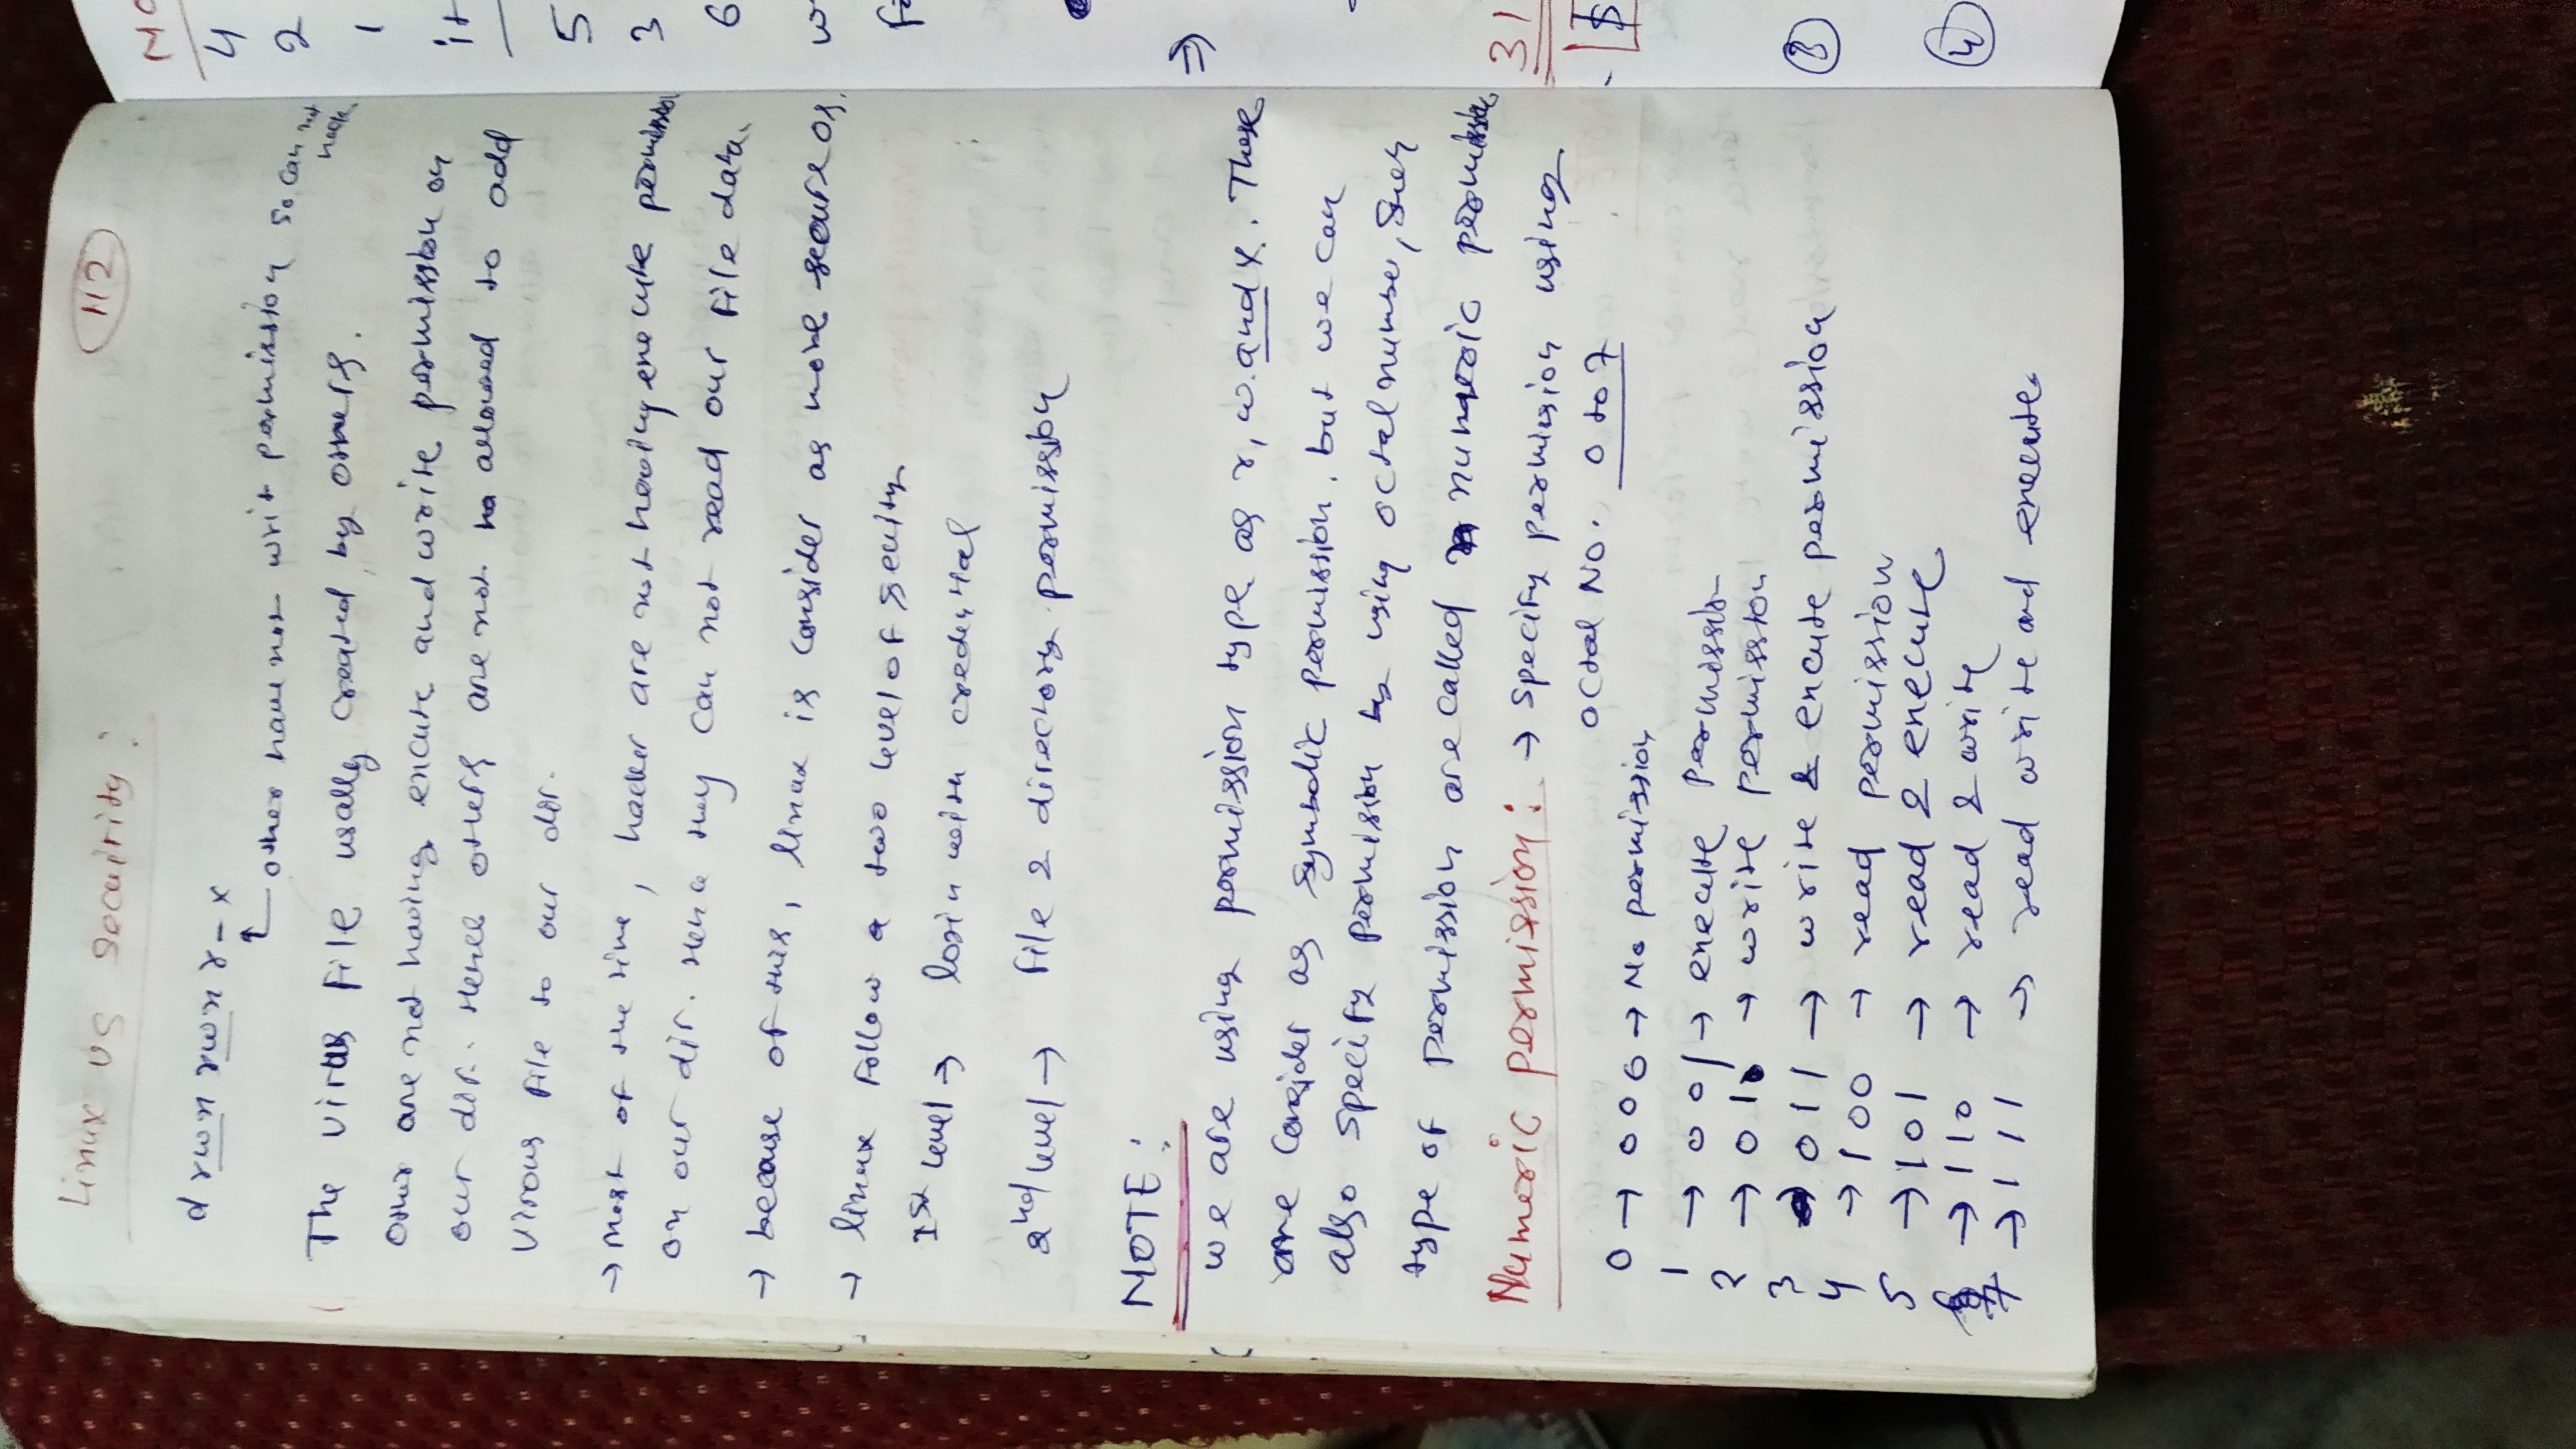 Linux vs secuirity :
112
d rwx rwx r - x
other have not writ permission so can not
hack.
The virus file usally created by others.
Other are not having excute and write permission on
our dir. Hence others are not allowed to add
Virous file to our dir.
→ Most of the time, hacker are not having execute permission
on our dir. Hence they can not read our file data.
→ because of this, linux is consider as more secure os.
→ linux follow a two level of secuity
1st level → login with credential
2nd level → file & directory permission
NOTE :
we are using permission type as r, w and x. These
are consider as symbolic permission. but we can
also specify permision by using octal number, such
type of permission are called numeric permission
Numeric permission : → specify permission using
octal No. 0 to 7
0 → 000 → No permission
1 → 001 → execute permission
2 → 010 → write permission
3 → 011 → write & excute permission
4 → 100 → read permission
5 → 101 → read & execute
6 → 110 → read & write
7 → 111 → read write and execute
NO
4
2
1
it
5
3
6
w
⇒
31
$
3
4